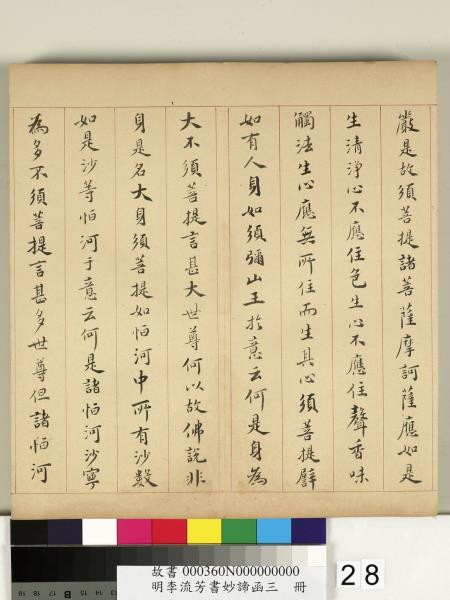 嚴是故須菩提諸菩薩摩訶薩應如是
生清淨心不應住色生心不應住聲香味
觸法生心應無所住而生其心須菩提譬
如有人身如須彌山王於意云何是身為
大不須菩提言甚大世尊何以故佛說非
身是名大身須菩提如恒河中所有沙數
如是沙等恒河于意云何是諸恒河沙寧
為多不須菩提言甚多世尊但諸恒河
故書 000360N000000000
明李流芳書妙諦函三 冊
28